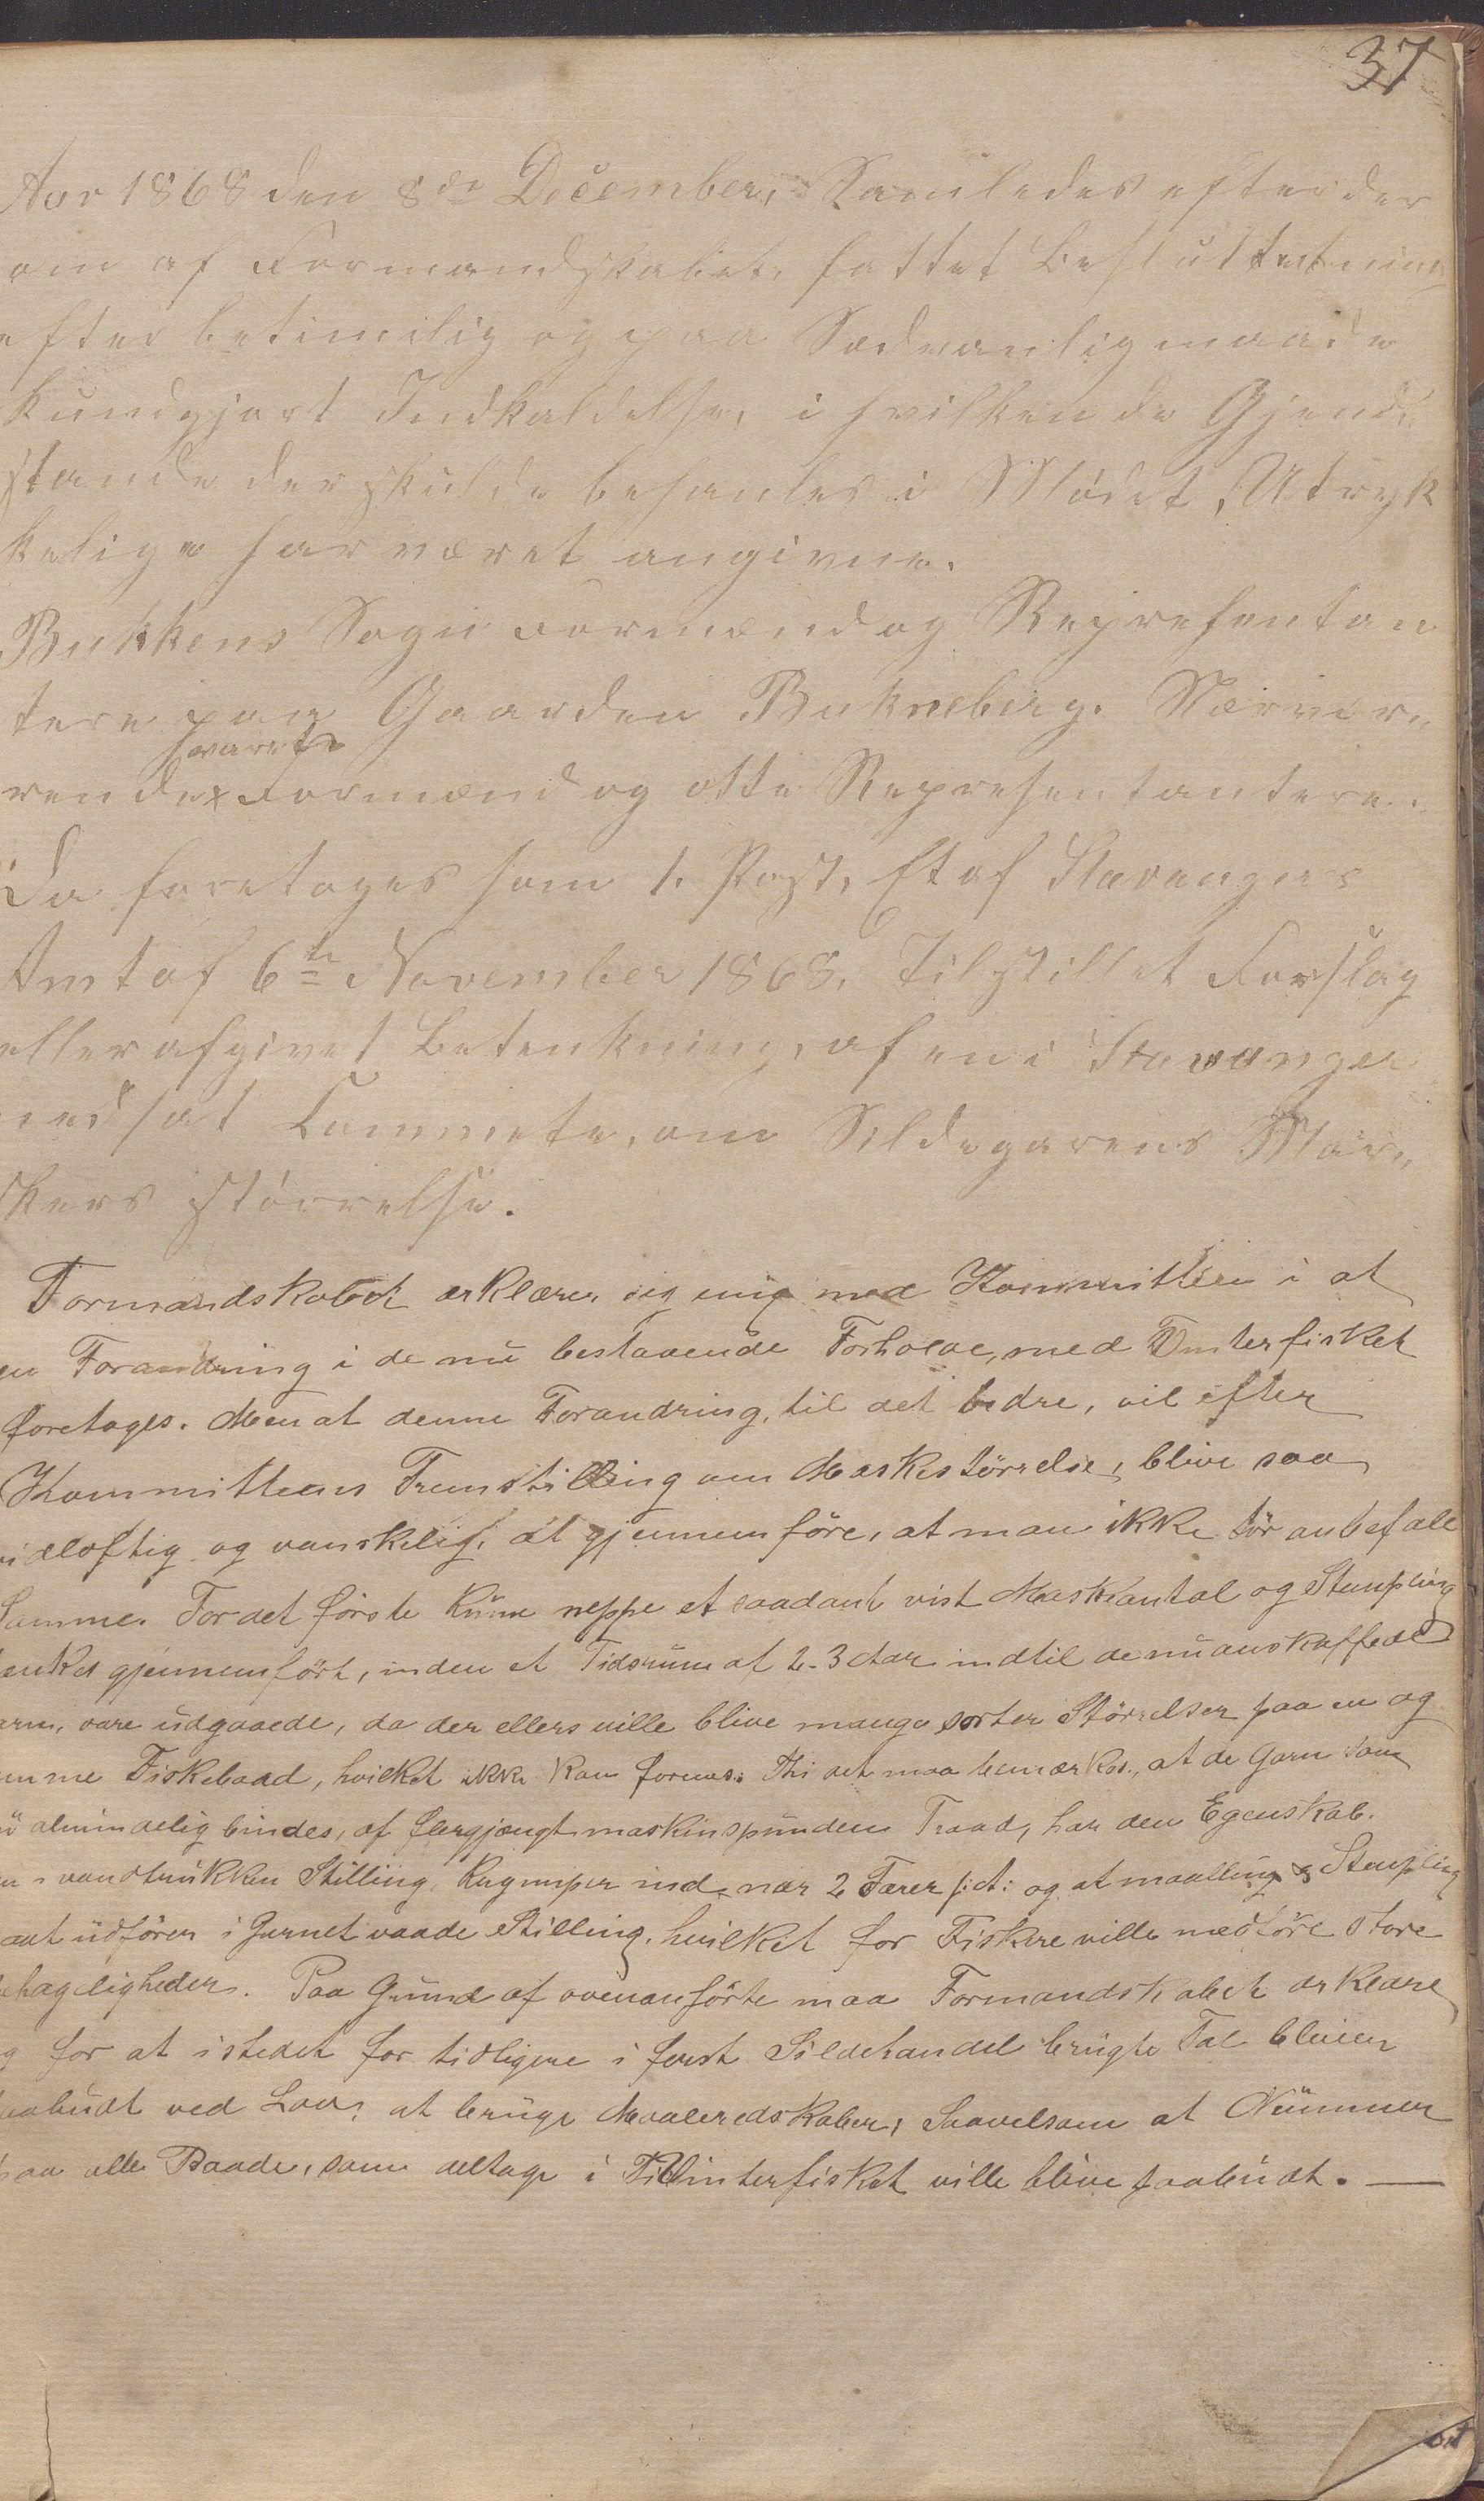 37
Aar 1868 den 8de December, Samledes efter der
om af Formandskabet, fattet Besluttetning
efter betimelig og paa Sædvanlig maade
Kundgjort Indkaldelse, i hvilken de Gjend„
stande der skulde behanles i Mødet, Utryk
kelige har været angivne.
Bukkens Sogn Formænd og Represendan
tere paa Gaarden Bukneberg. Nærvær„
svarende
rende x Formænd og otte Representantere.
Da foretages som 1. Post, Et af Stavangers
Amt af 6te November 1868. Tilstillet Forslag
eller afgivet Betenkning, af en i Stavanger
nedsat Commete, om Sildegarens Mas„
kers størrelse.
Formandskabet erklærer sig enig med Kommitteen i at
en Forandring i de nu bestaaende Forholde, med Vinterfisket
foretages. Men at denne Forandring, til det bedre, vil efter
Kommitteens Fremstilling om Maskestörrelse, blive saa
vidløftig og vanskelig, at gjennemföre, at man ikke tör anbefale
Samme. For det förste kunne neppe et saadant vist Maskeantal og Stempling
tænkes gjennemfört, inden et Tidsrum af 2-3 Aar indtil de nu anskaffede
Garn, vare udgaaede, da der ellers ville blive mange sorter Störrelser paa en og
samme Fiskebaad, hvilket ikke kan forenes. Thi det maa bemærkes, at de Garn som
nu almindelig bindes, af flergjængt maskinspunden Traad, har den Egenskab.
en i vandtrukken Stilling, krymper ind nær 2 Farer og at maalling & Stempling
udfören i Garnet vaade Stilling, hvilket for Fiskere ville medföre store
behageligheder. Paa Grund af ovenanförte maa Formandskabet erklære
sig for at istedet for tidligere i fersk Sildehandel brugte Tal bliver
paabudt ved Lov, at bruge Maaleredskaber, Saavelsom at Nummer
paa alle Baade, som deltage i Vinterfisket ville blive paabudt. —